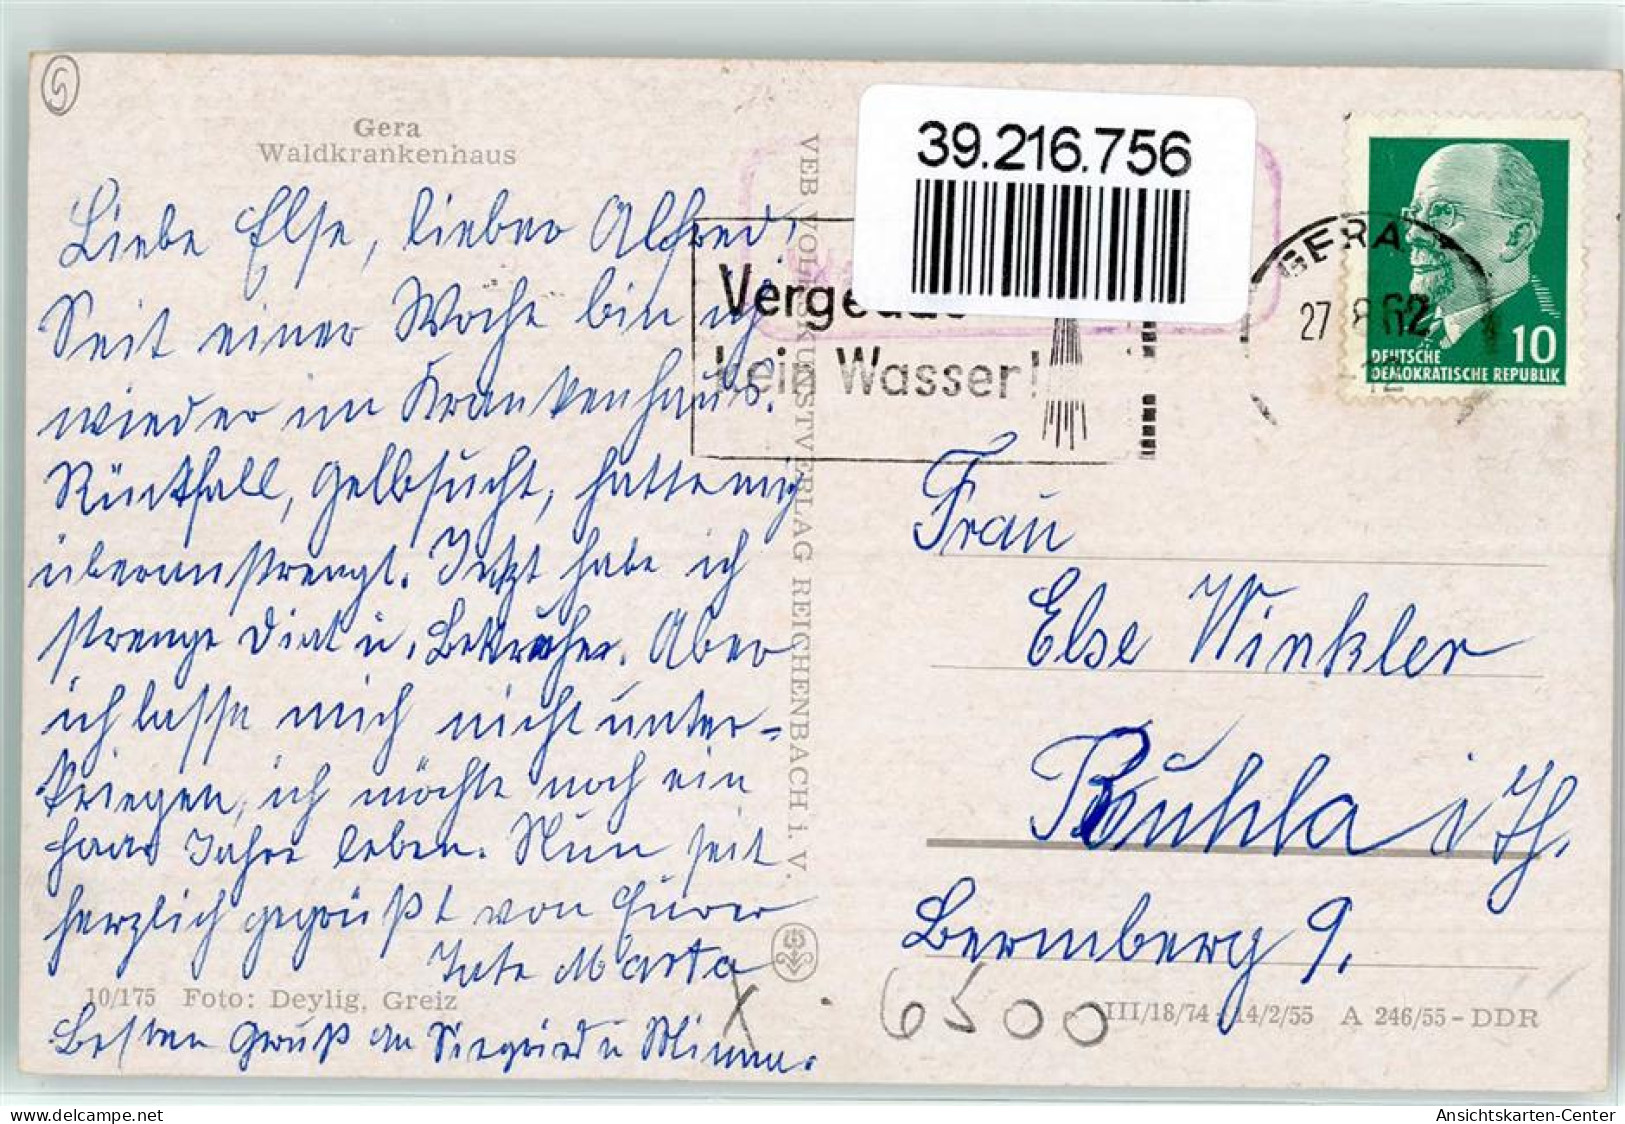 Gera
Waldkrankenhaus
Liebe Else, lieber Alfred,
Seit einer Woche bin ich
wieder im Krankenhaus.
Rückfall, Gelbsucht, hatte mich
überanstrengt. Jetzt habe ich
strenge Diät u. Bettruhe. Aber
ich lasse mich nicht unter-
kriegen, ich möchte noch ein
paar Jahre leben. Nun seit
herzlich gegrüßt von Eurer
Tate Marta
10/175 Foto: Deylig, Greiz
Besten Gruß an Siegfried u Minna.
VEB VOLKSKUNSTVERLAG REICHENBACH i. V.
39.216.756
kein Wasser!
GERA
27.8.62
10
DEUTSCHE
DEMOKRATISCHE REPUBLIK
Frau
Else Winkler
Ruhla i Th.
Bermberg 9.
6500
III/18/74 14/2/55 A 246/55 - DDR
Ansichtskarten-Center